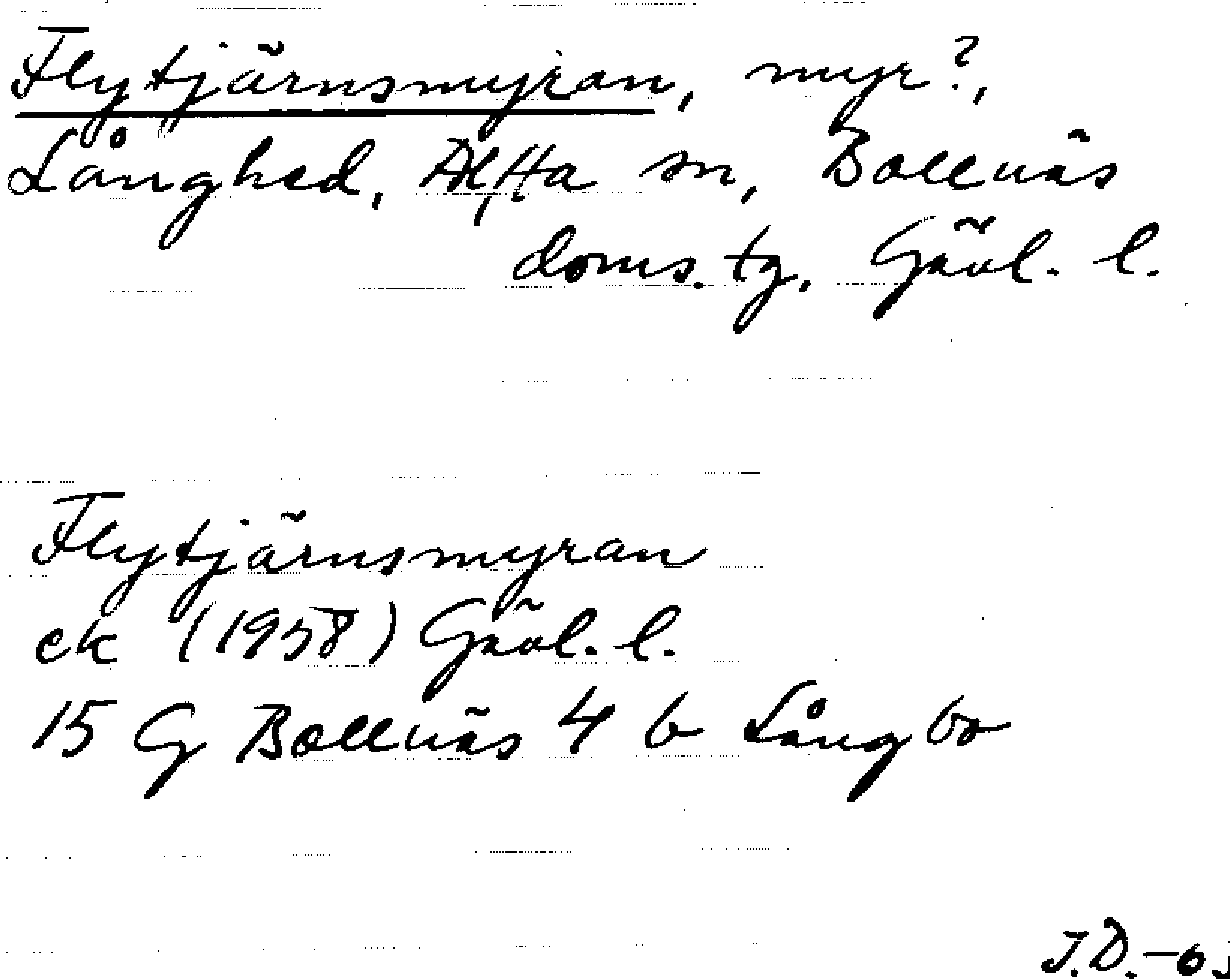 Flytjärnsmyran, myr?,
Långhed, Alfta sn, Bollnäs
doms. tg, Gävl. l.
Flytjärnsmyran
ek (1958) Gävl. l.
15 G Bollnäs 4 b Långbo
J.D.-6